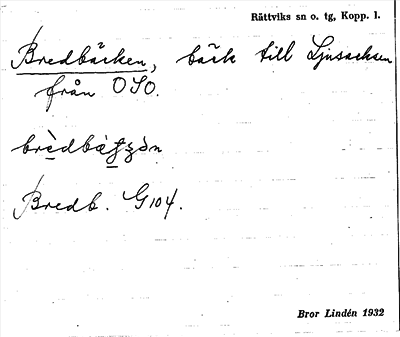 Rättviks sn o. tg, Kopp. l.
Bredbäcken, bäck till Ljusacksen
från OSO.
Bredb. G104.
Bror Lindén 1932